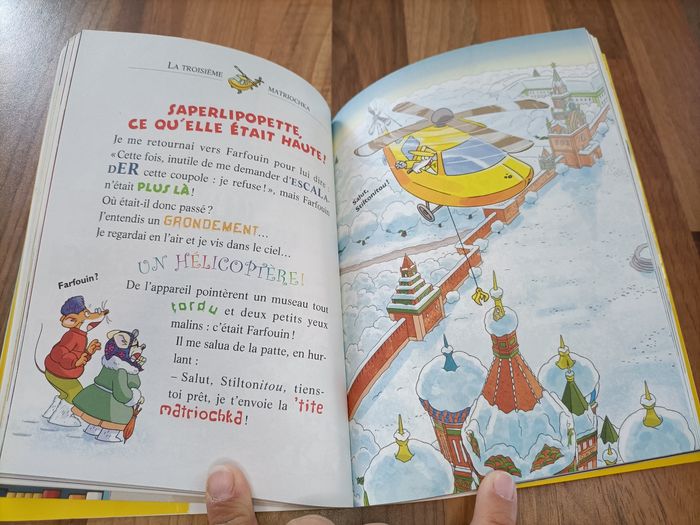 LA TROISIÈME
MATRIOCHKA
SAPERLIPOPETTE,
CE QU'ELLE ÉTAIT HAUTE !
Je me retournai vers Farfouin pour lui dire :
« Cette fois, inutile de me demander d'ESCALA-
DER cette coupole : je refuse ! », mais Farfouin
n'était PLUS LÀ !
Où était-il donc passé ?
J'entendis un GRONDEMENT...
Je regardai en l'air et je vis dans le ciel...
UN HÉLICOPTÈRE !
De l'appareil pointèrent un museau tout
tordu et deux petits yeux
malins : c'était Farfouin !
Il me salua de la patte, en hur-
lant :
– Salut, Stiltonitou, tiens-
toi prêt, je t'envoie la 'tite
matriochka !
Farfouin ?
Salut,
Stiltonitou !